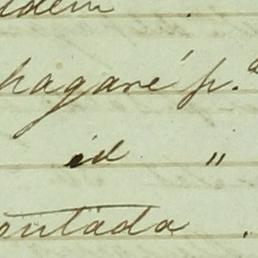 idem .
hagaré p.ª
id "
ontada .